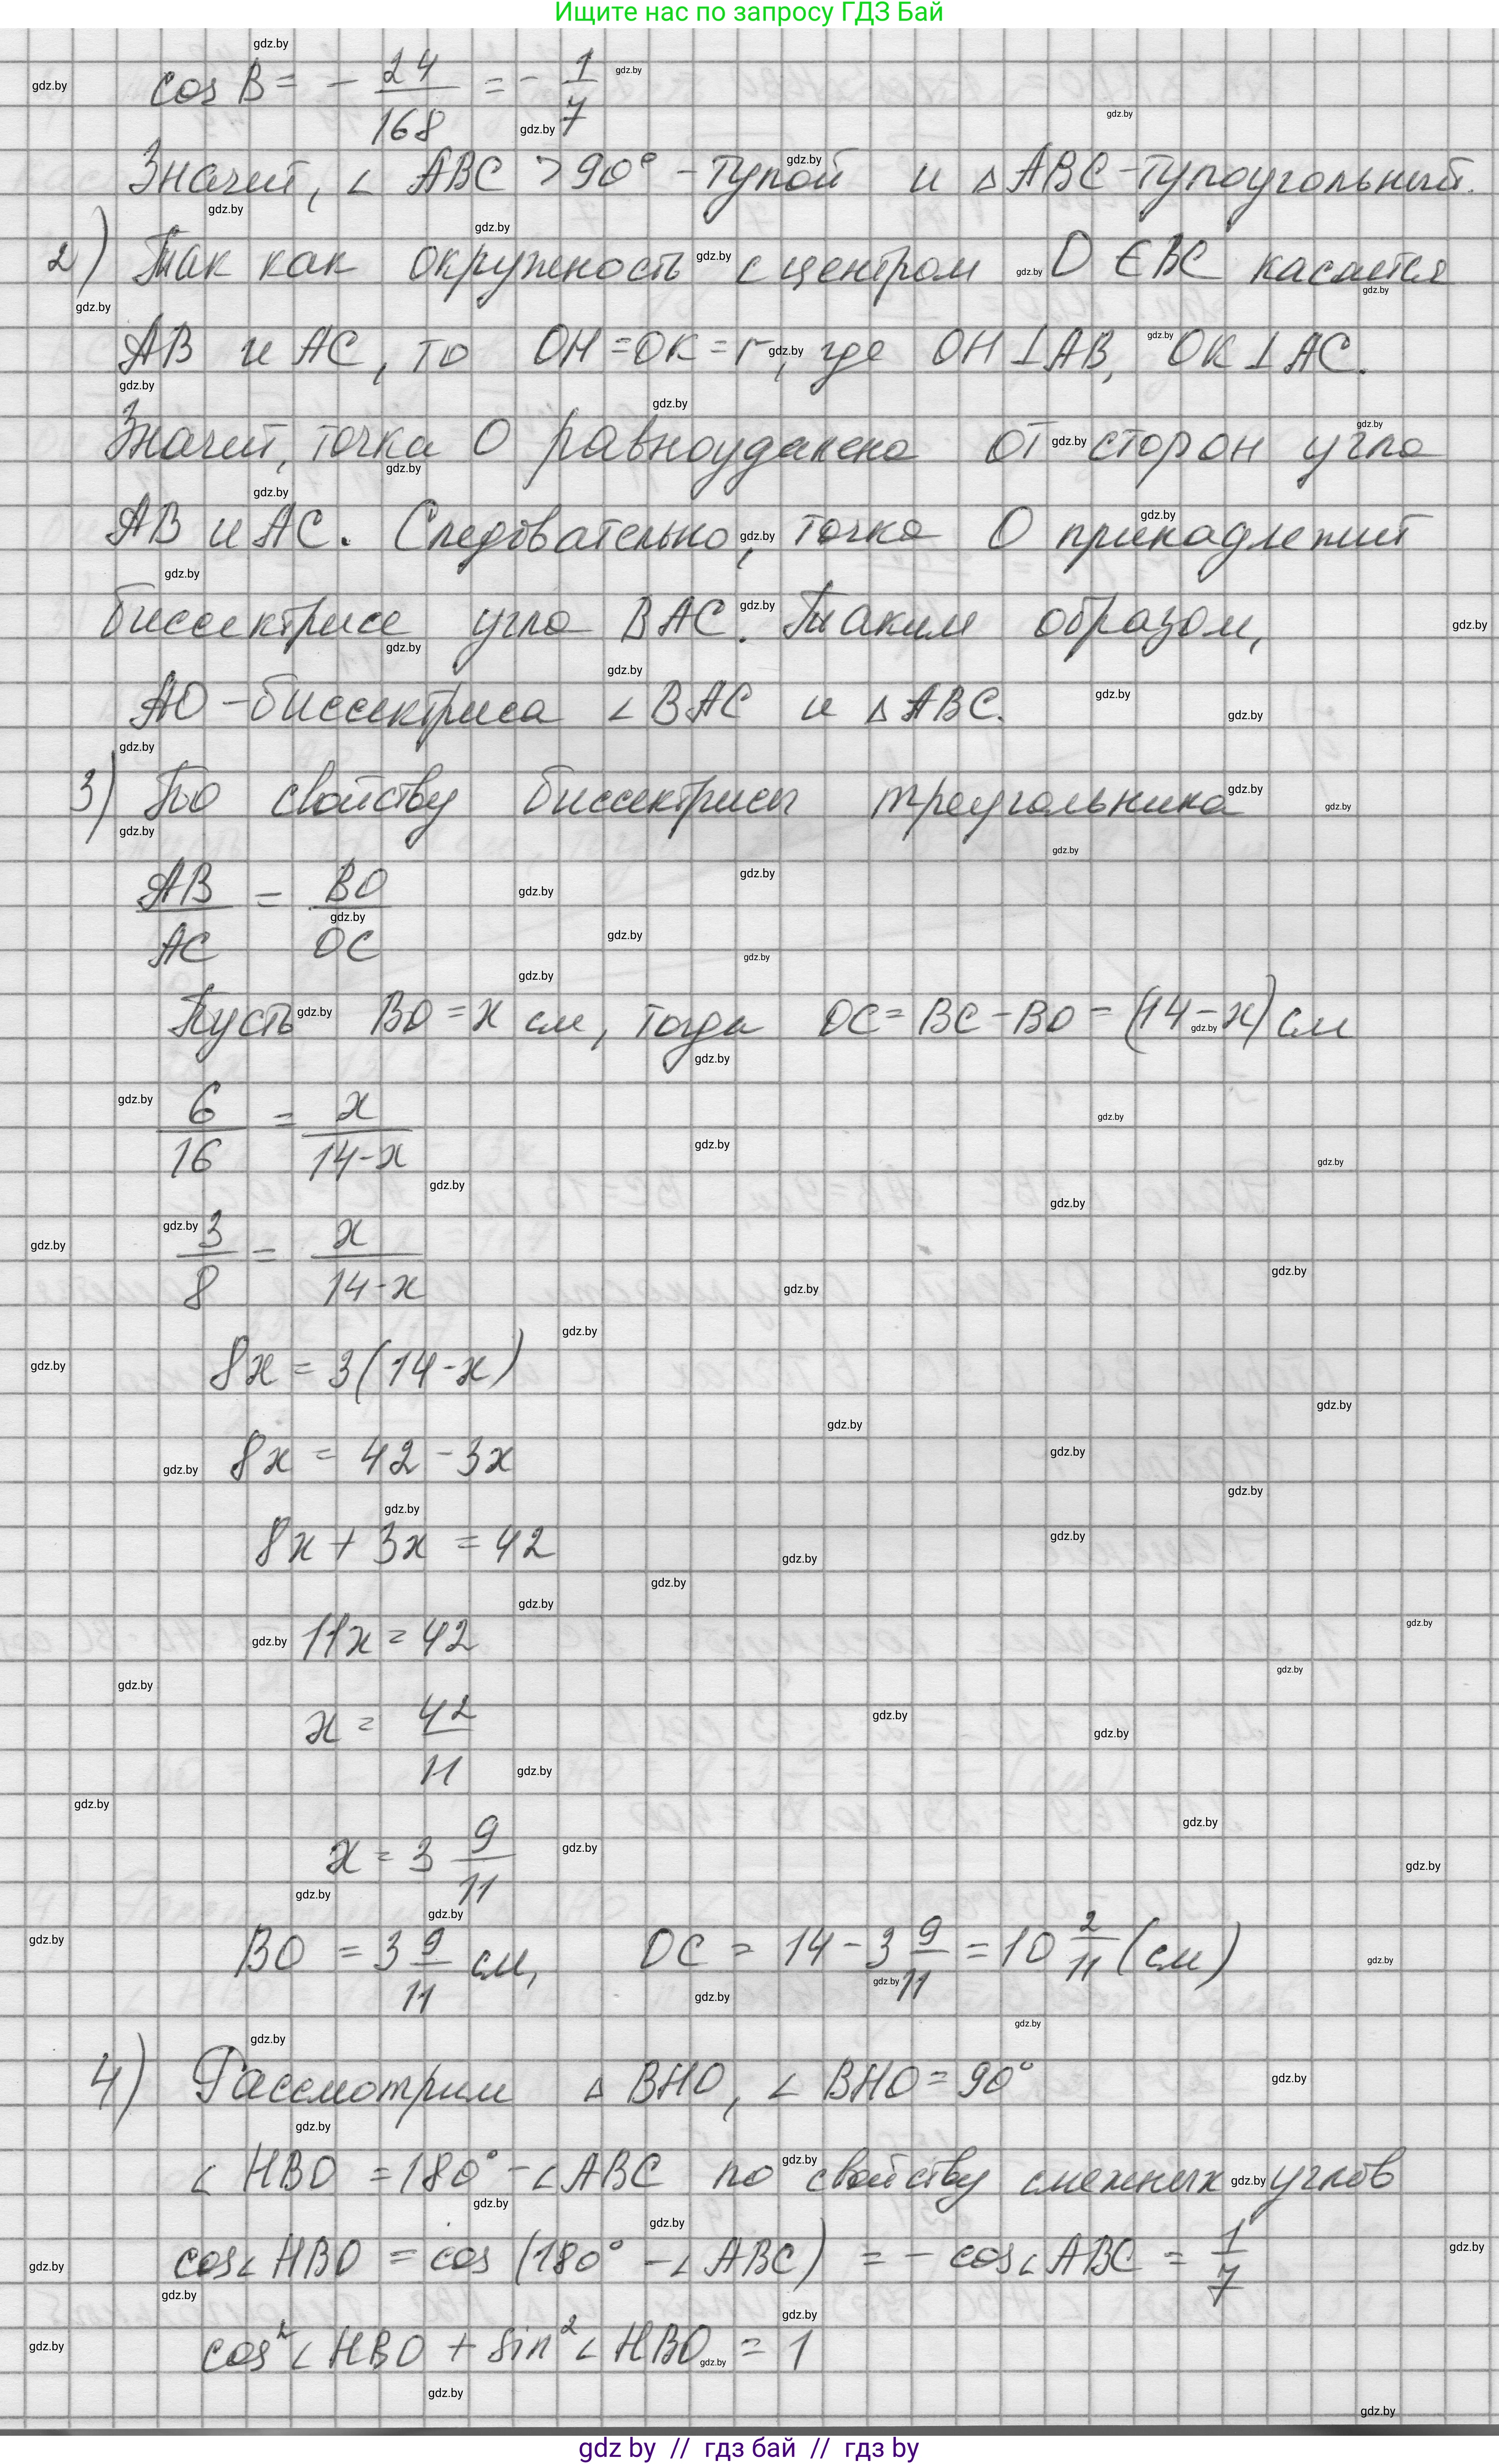 Ищите нас по запросу ГДЗ Бай
cos B = - 24/168 = - 1/7
Значит, ∠ ABC > 90° - тупой и △ ABC - тупоугольный.
2) Так как окружность с центром O ∈ BC касается
AB и AC, то OH = OK = r, где OH ⊥ AB, OK ⊥ AC.
Значит, точка O равноудалена от сторон угла
AB и AC. Следовательно, точка O принадлежит
биссектрисе угла BAC. Таким образом,
AO - биссектриса ∠ BAC и △ ABC.
3) По свойству биссектрисы треугольника
AB/AC = BO/OC
Пусть BO = x см, тогда OC = BC - BO = (14 - x) см
6/16 = x/(14-x)
3/8 = x/(14-x)
8x = 3(14-x)
8x = 42 - 3x
8x + 3x = 42
11x = 42
x = 42/11
x = 3 9/11
BO = 3 9/11 см, OC = 14 - 3 9/11 = 10 2/11 (см)
4) Рассмотрим △ BHO, ∠ BHO = 90°
∠ HBO = 180° - ∠ ABC по свойству смежных углов
cos∠ HBO = cos (180° - ∠ ABC) = - cos∠ ABC = 1/7
cos²∠ HBO + sin²∠ HBO = 1
gdz by // гдз бай // гдз by